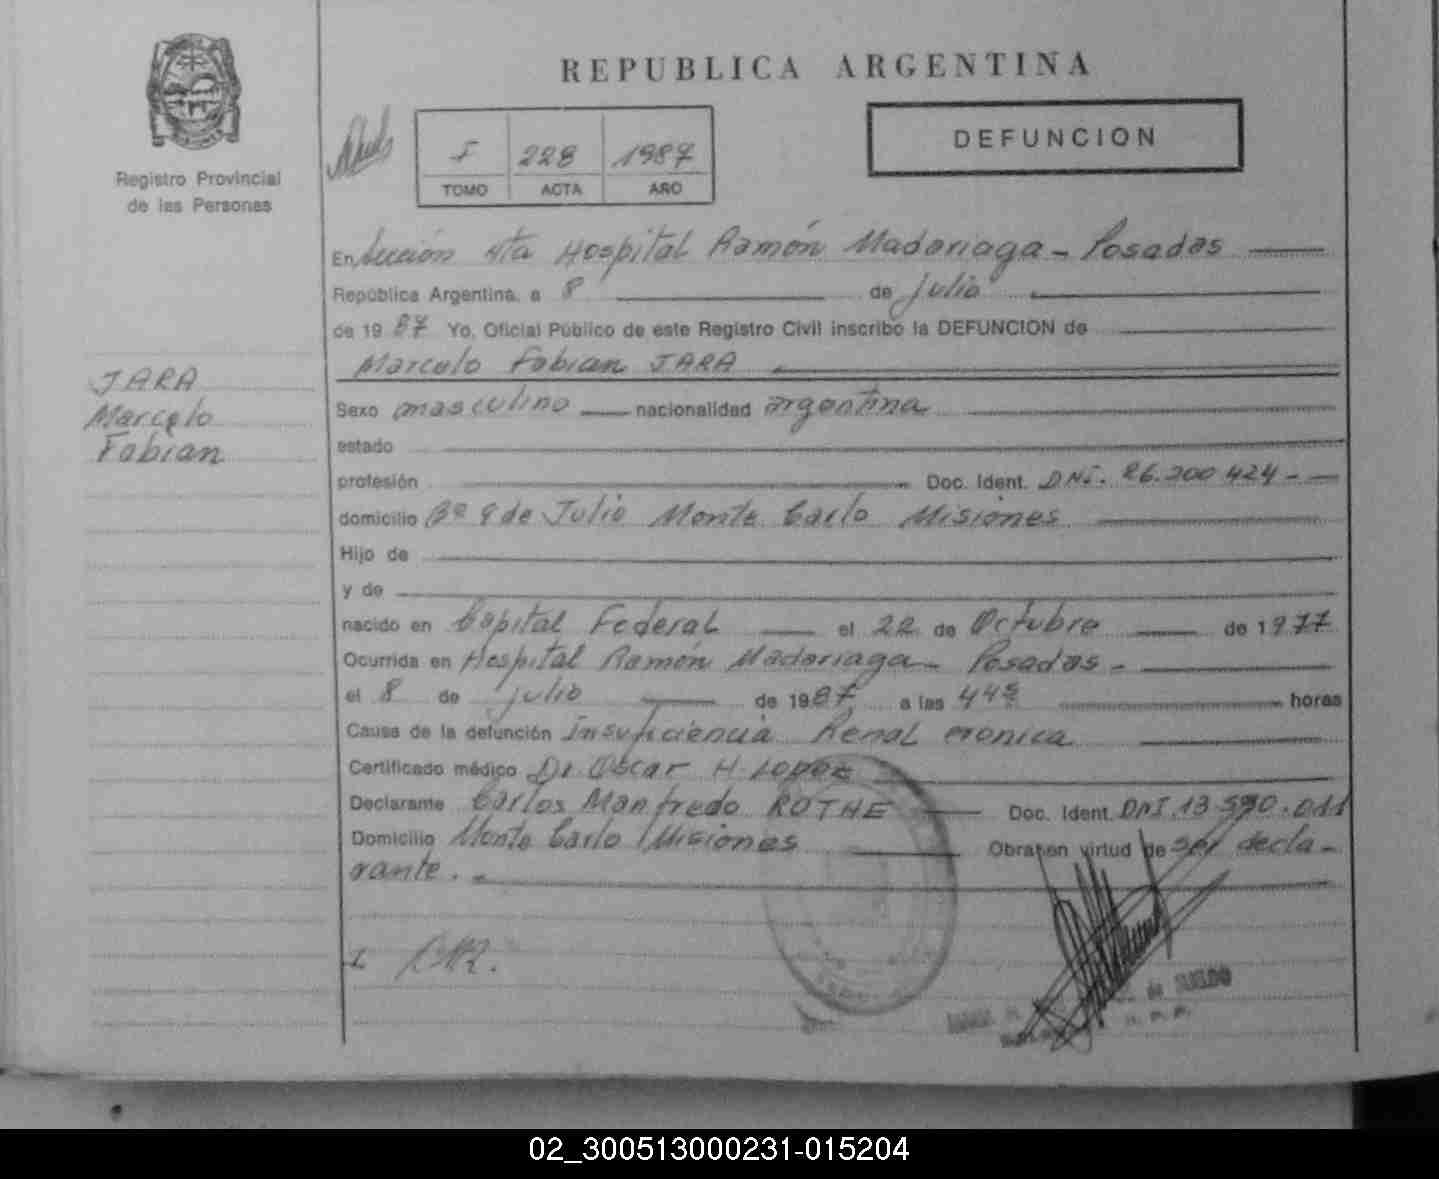 REPUBLICA ARGENTINA
DEFUNCION
I 228 1987
TOMO ACTA AÑO
Registro Provincial
de las Personas
En Sección 4ta Hospital Ramón Madariaga - Posadas
República Argentina, a 8 de julio
de 1987 Yo, Oficial Público de este Registro Civil inscribo la DEFUNCION de
Marcelo Fabian JARA
JARA
Marcelo
Fabian
Sexo masculino nacionalidad argentina
estado
profesión Doc. Ident. DNI. 26.200 424 -
domicilio Bº 9 de Julio Monte Carlo Misiones
Hijo de
y de
nacido en Capital Federal el 22 de Octubre de 1977
Ocurrida en Hospital Ramón Madariaga - Posadas -
el 8 de julio de 1987 a las 445 horas
Causa de la defunción Insuficiencia Renal cronica
Certificado médico Dr. Oscar H. Lopez
Declarante Carlos Manfredo ROTHE Doc. Ident. DNI. 13.590.011
Domicilio Monte Carlo Misiones Obra en virtud de ser decla-
rante. -
de SUELDO
02_300513000231-015204